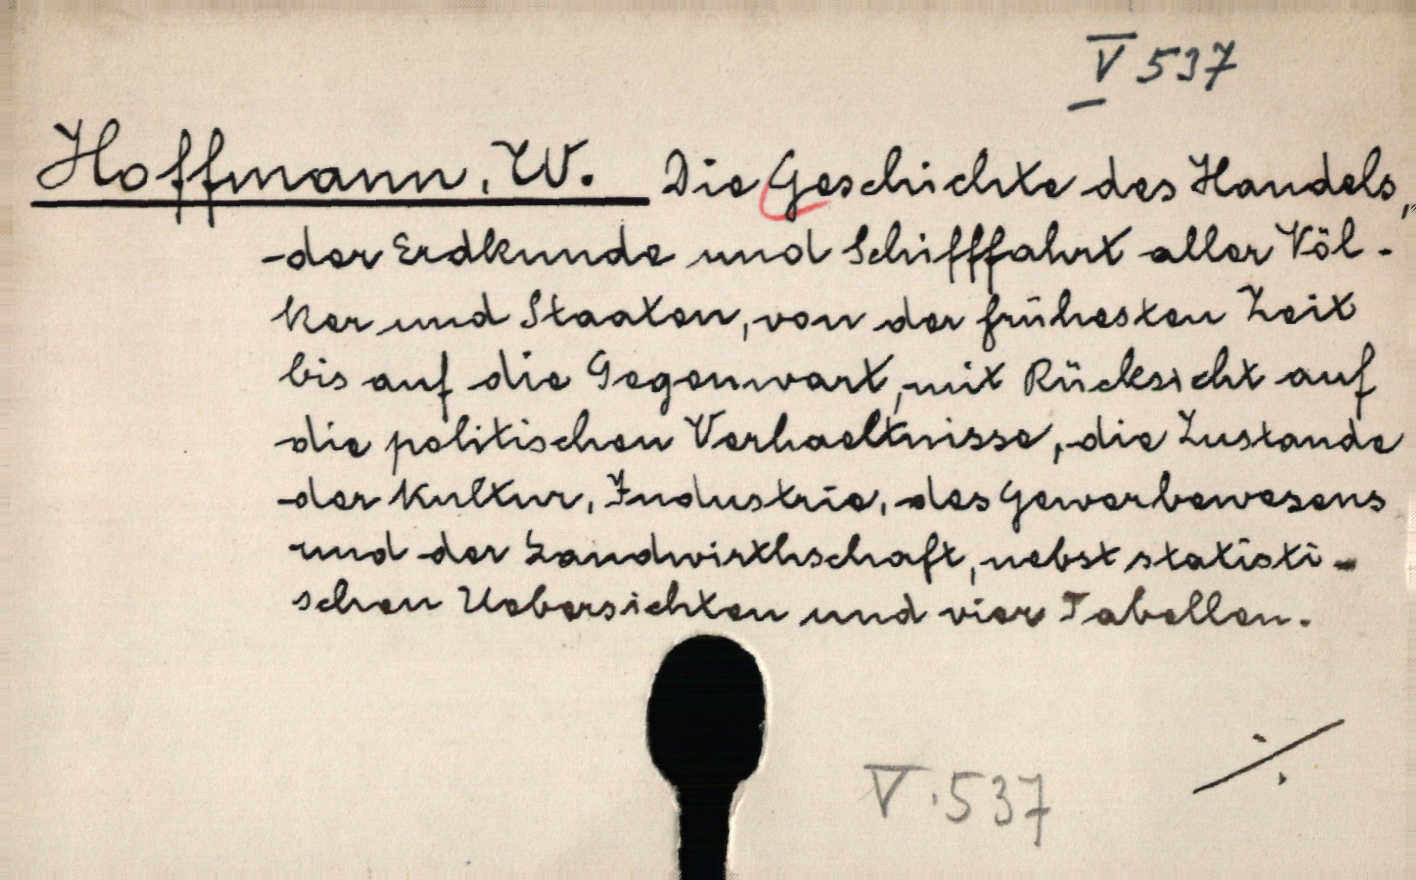 V 537
Hoffmann, W. Die Geschichte des Handels,
der Erdkunde und Schifffahrt aller Völ-
ker und Staaten, von der frühesten Zeit
bis auf die Gegenwart, mit Rücksicht auf
die politischen Verhaeltnisse, die Zustande
der Kultur, Industrie, des Gewerbewesens
und der Landwirthschaft, nebst statisti-
schen Uebersichten und vier Tabellen.
V.537